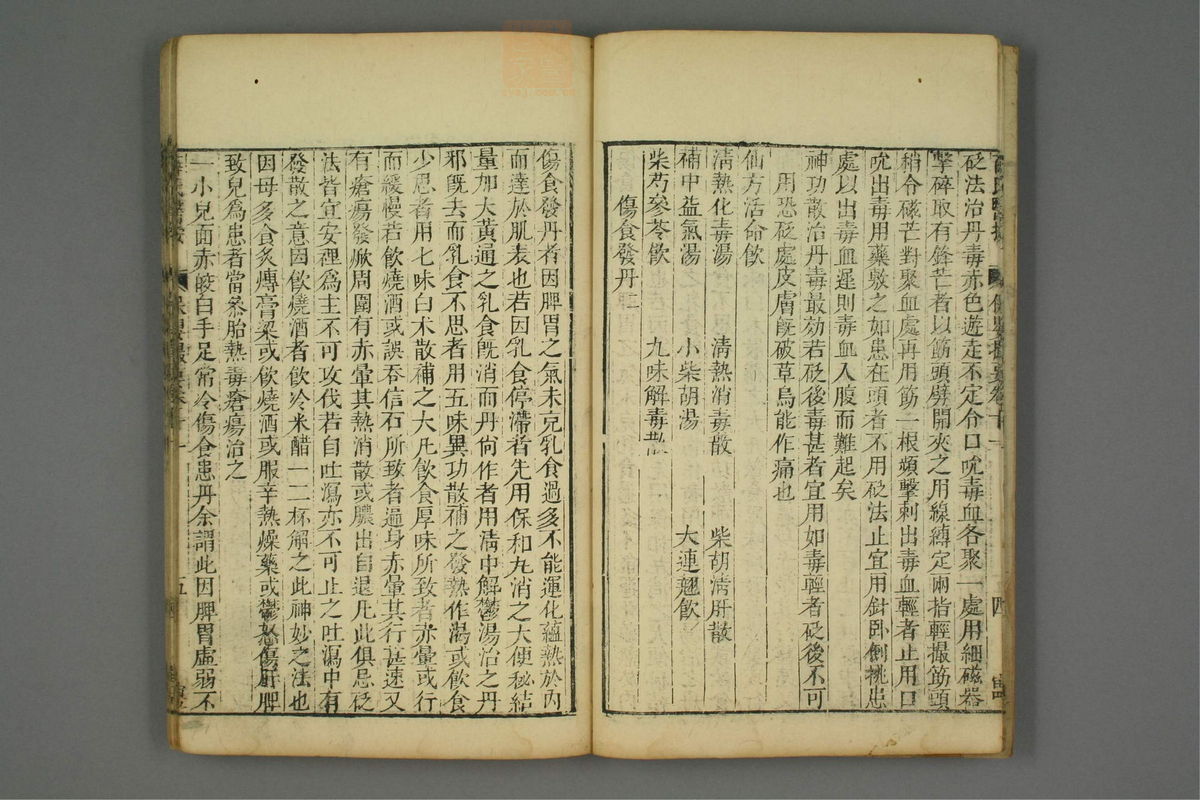 砭法治丹毒赤色遊走不定令口吮毒血各聚一處用細磁器
擊碎取有鋒芒者以筯頭劈開夾之用線縛定兩指輕撮筯頭
稍令磁芒對聚血處再用筯一根頻擊刺出毒血輕者止用口
吮出毒用藥敷之如患在頭者不用砭法止宜用針卧倒挑患
處以出毒血遲則毒血入腹而難起矣
神功散治丹毒最効若砭後毒甚者宜用如毒輕者砭後不可
用恐砭處皮膚既破草烏能作痛也
仙方活命飲
清熱化毒湯 清熱消毒散 柴胡清肝散
補中益氣湯 小柴胡湯 大連翹飲
柴芍參苓飲 九味解毒散
傷食發丹二
傷食發丹者因脾胃之氣未克乳食過多不能運化蘊熱於内
而達於肌表也若因乳食停滯者先用保和丸消之大便秘結
量加大黃通之乳食既消而丹尚作者用清中解鬱湯治之丹
邪既去而乳食不思者用五味異功散補之發熱作渴或飲食
少思者用七味白术散補之大凡飲食厚味所致者赤暈或行
而緩慢若飲燒酒或誤吞信石所致者遍身赤暈其行甚速又
有瘡瘍發焮周圍有赤暈其熱消散或膿出自退凡此俱忌砭
法皆宜安裡爲主不可攻伐若自吐瀉亦不可止之吐瀉中有
發散之意因飲燒酒者飲冷米醋一二杯解之此神妙之法也
因母多食炙煿膏粱或飲燒酒或服辛熱燥藥或鬱怒傷肝脾
致兒爲患者當叅胎熱毒瘡瘍治之
一小兒面赤㿠白手足常冷傷食患丹余謂此因脾胃虛弱不